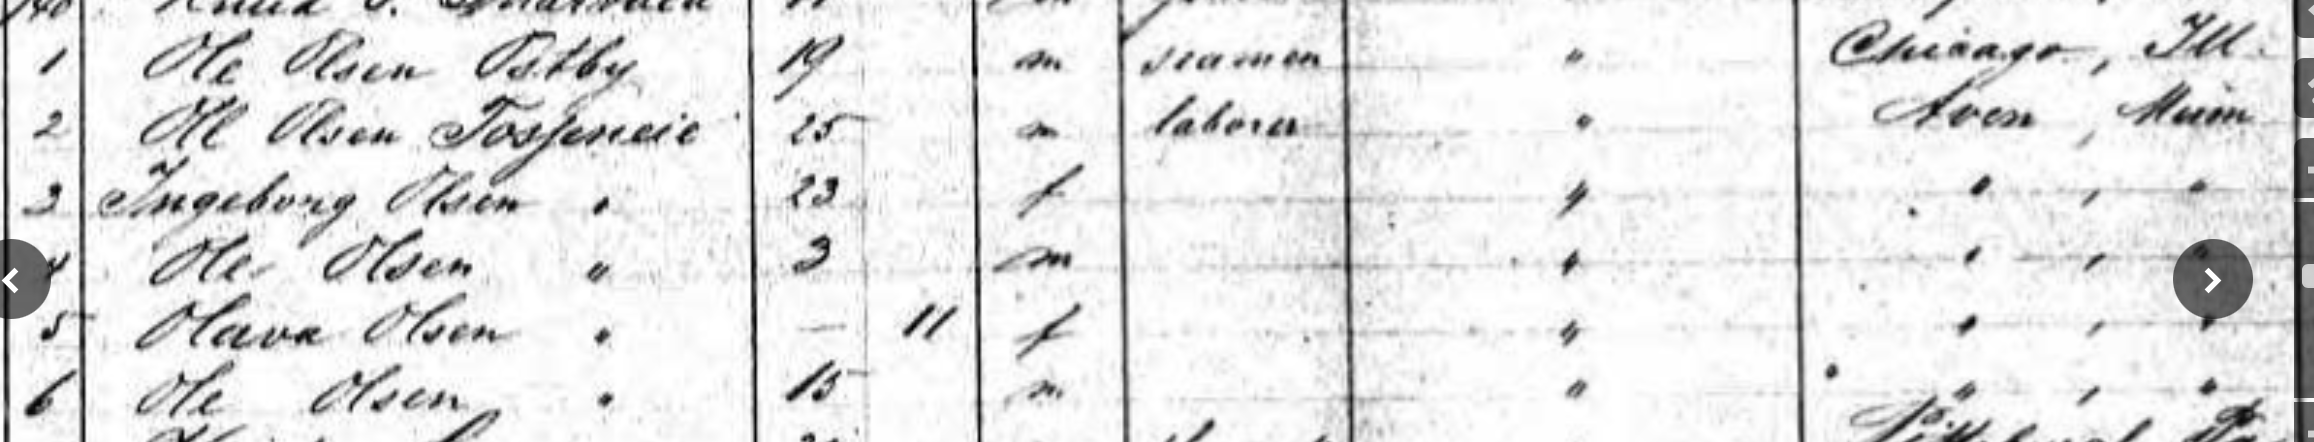 1 Ole Olsen Ostby 19 m seamen " Chicago, Ill.
2 Ole Olsen 25 m laborer " Aven, Minn
3 Ingeborg Olsen " 23 f " " , "
4 Ole Olsen " 3 m " " , "
5 Olava Olsen " — 11 f " " , "
6 Ole Olsen " 15 m " " , "